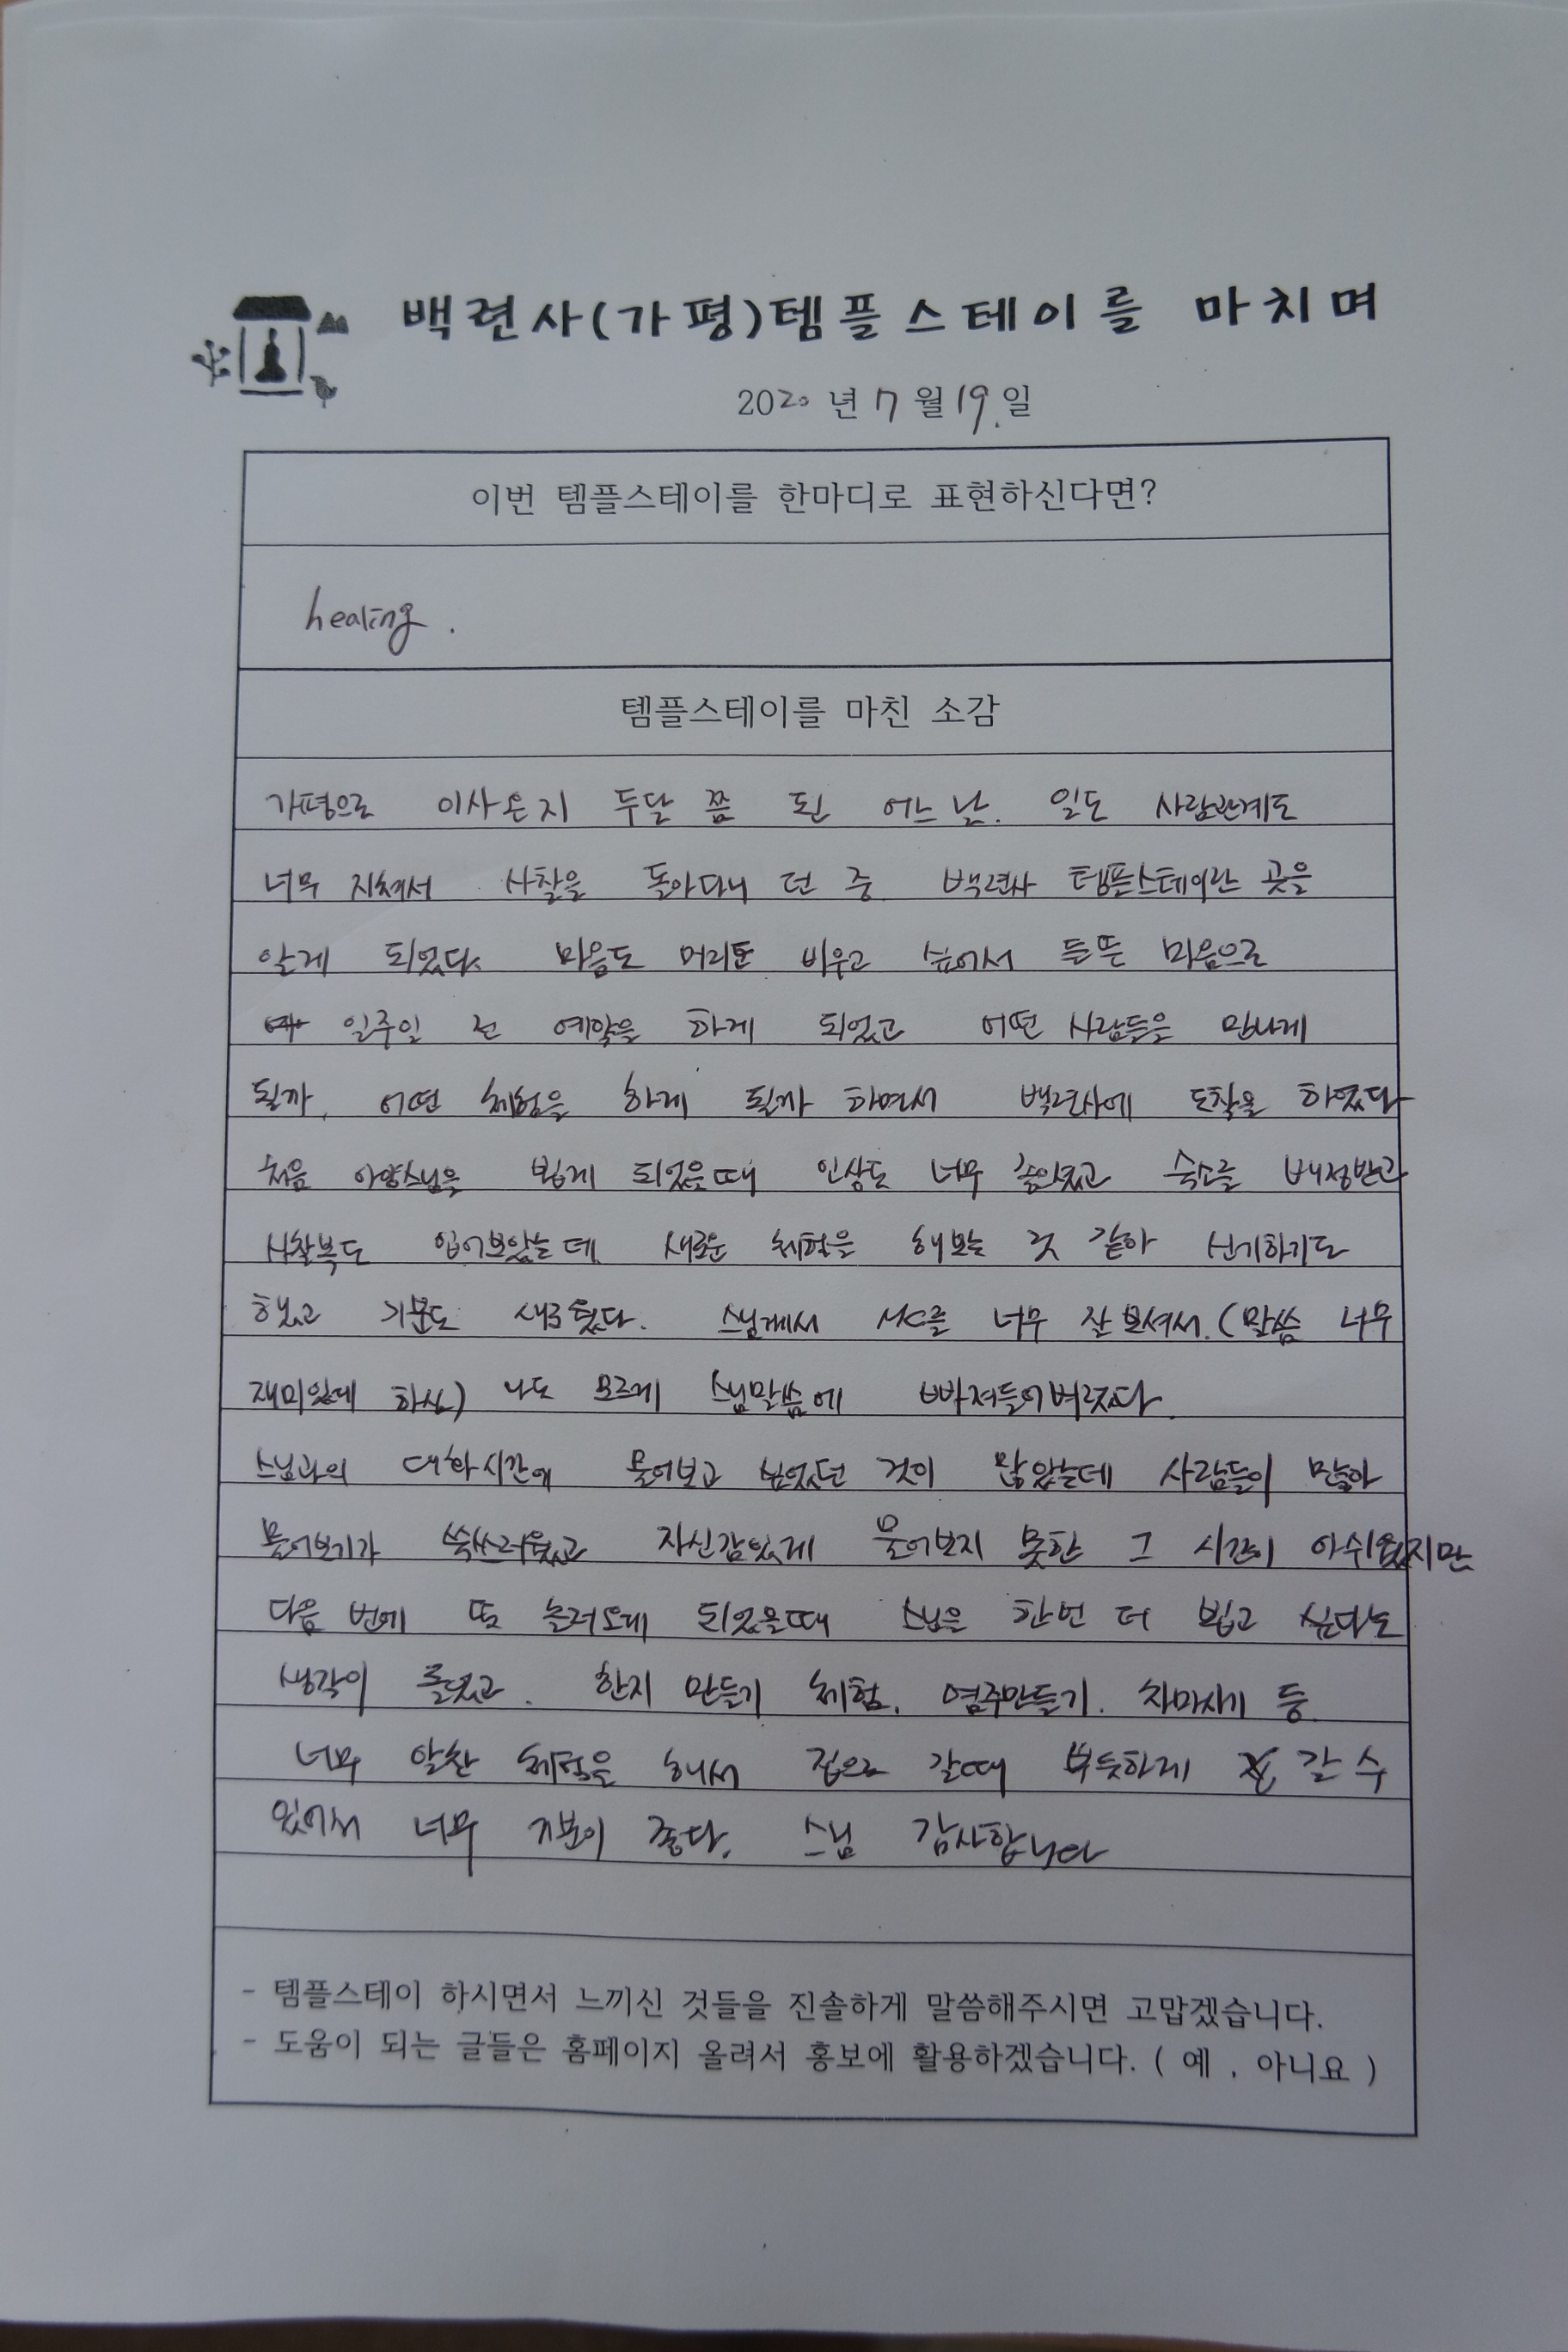 백련사(가평)템플스테이를 마치며
2020 년 7 월 19. 일
이번 템플스테이를 한마디로 표현하신다면?
healing.
템플스테이를 마친 소감
가평으로 이사온지 두달 쯤 된 어느 날. 일도 사람관계도
너무 지쳐서 사찰을 돌아다니 던 중 백련사 템플스테이란 곳을
알게 되었다. 마음도 머리도 비우고 싶어서 들뜬 마음으로
일주일 전 예약을 하게 되었고 어떤 사람들을 만나게
될까, 어떤 체험을 하게 될까 하면서 백련사에 도착을 하였다
처음 스님을 뵙게 되었을때 인상도 너무 좋으셨고 숙소를 배정받고
사찰복도 입어보았는데 새로운 체험을 해보는 것 같아 신기하기도
했고 기분도 새로웠다. 스님께서 MC를 너무 잘 보셔서.(말씀 너무
재미있게 하심) 나도 모르게 스님말씀에 빠져들어버렸다.
스님과의 대화시간에 물어보고 싶었던 것이 많았는데 사람들이 많아
물어보기가 쑥쓰러웠고 자신감있게 물어보지 못한 그 시간이 아쉬웠지만
다음 번에 또 놀러오게 되었을때 스님을 한번 더 뵙고 싶다는
생각이 들었고. 한지 만들기 체험, 염주만들기. 차마시기 등.
너무 알찬 체험을 해서 집으로 갈때 뿌듯하게 갈 수
있어서 너무 기분이 좋다. 스님 감사합니다
- 템플스테이 하시면서 느끼신 것들을 진솔하게 말씀해주시면 고맙겠습니다.
- 도움이 되는 글들은 홈페이지 올려서 홍보에 활용하겠습니다. ( 예 , 아니요 )